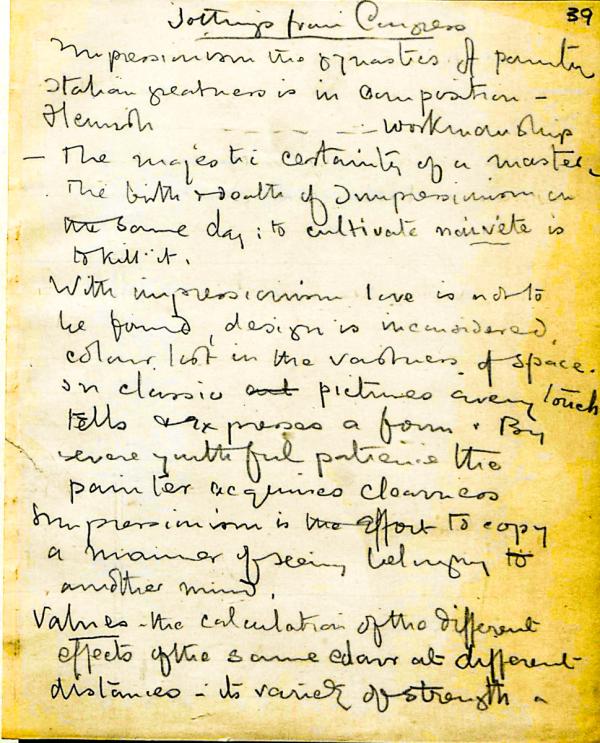 Jottings from Congress
39
Impressionism the gymnastics of painting
Italian greatness is in composition -
Flemish - - - - workmanship
- The majestic certainty of a master.
The birth & death of Impressionism on
the same day; to cultivate naivete is
to kill it.
With impressionism love is not to
be found, design is inconsidered,
colour lost in the vastness of space.
In classic art pictures every touch
tells & expresses a form. By
severe youthful patience the
painter acquires clearness
Impressionism is the effort to copy
a manner of seeing belonging to
another mind.
Values - the calculation of the different
effects of the same colour at different
distances - its variety of strength